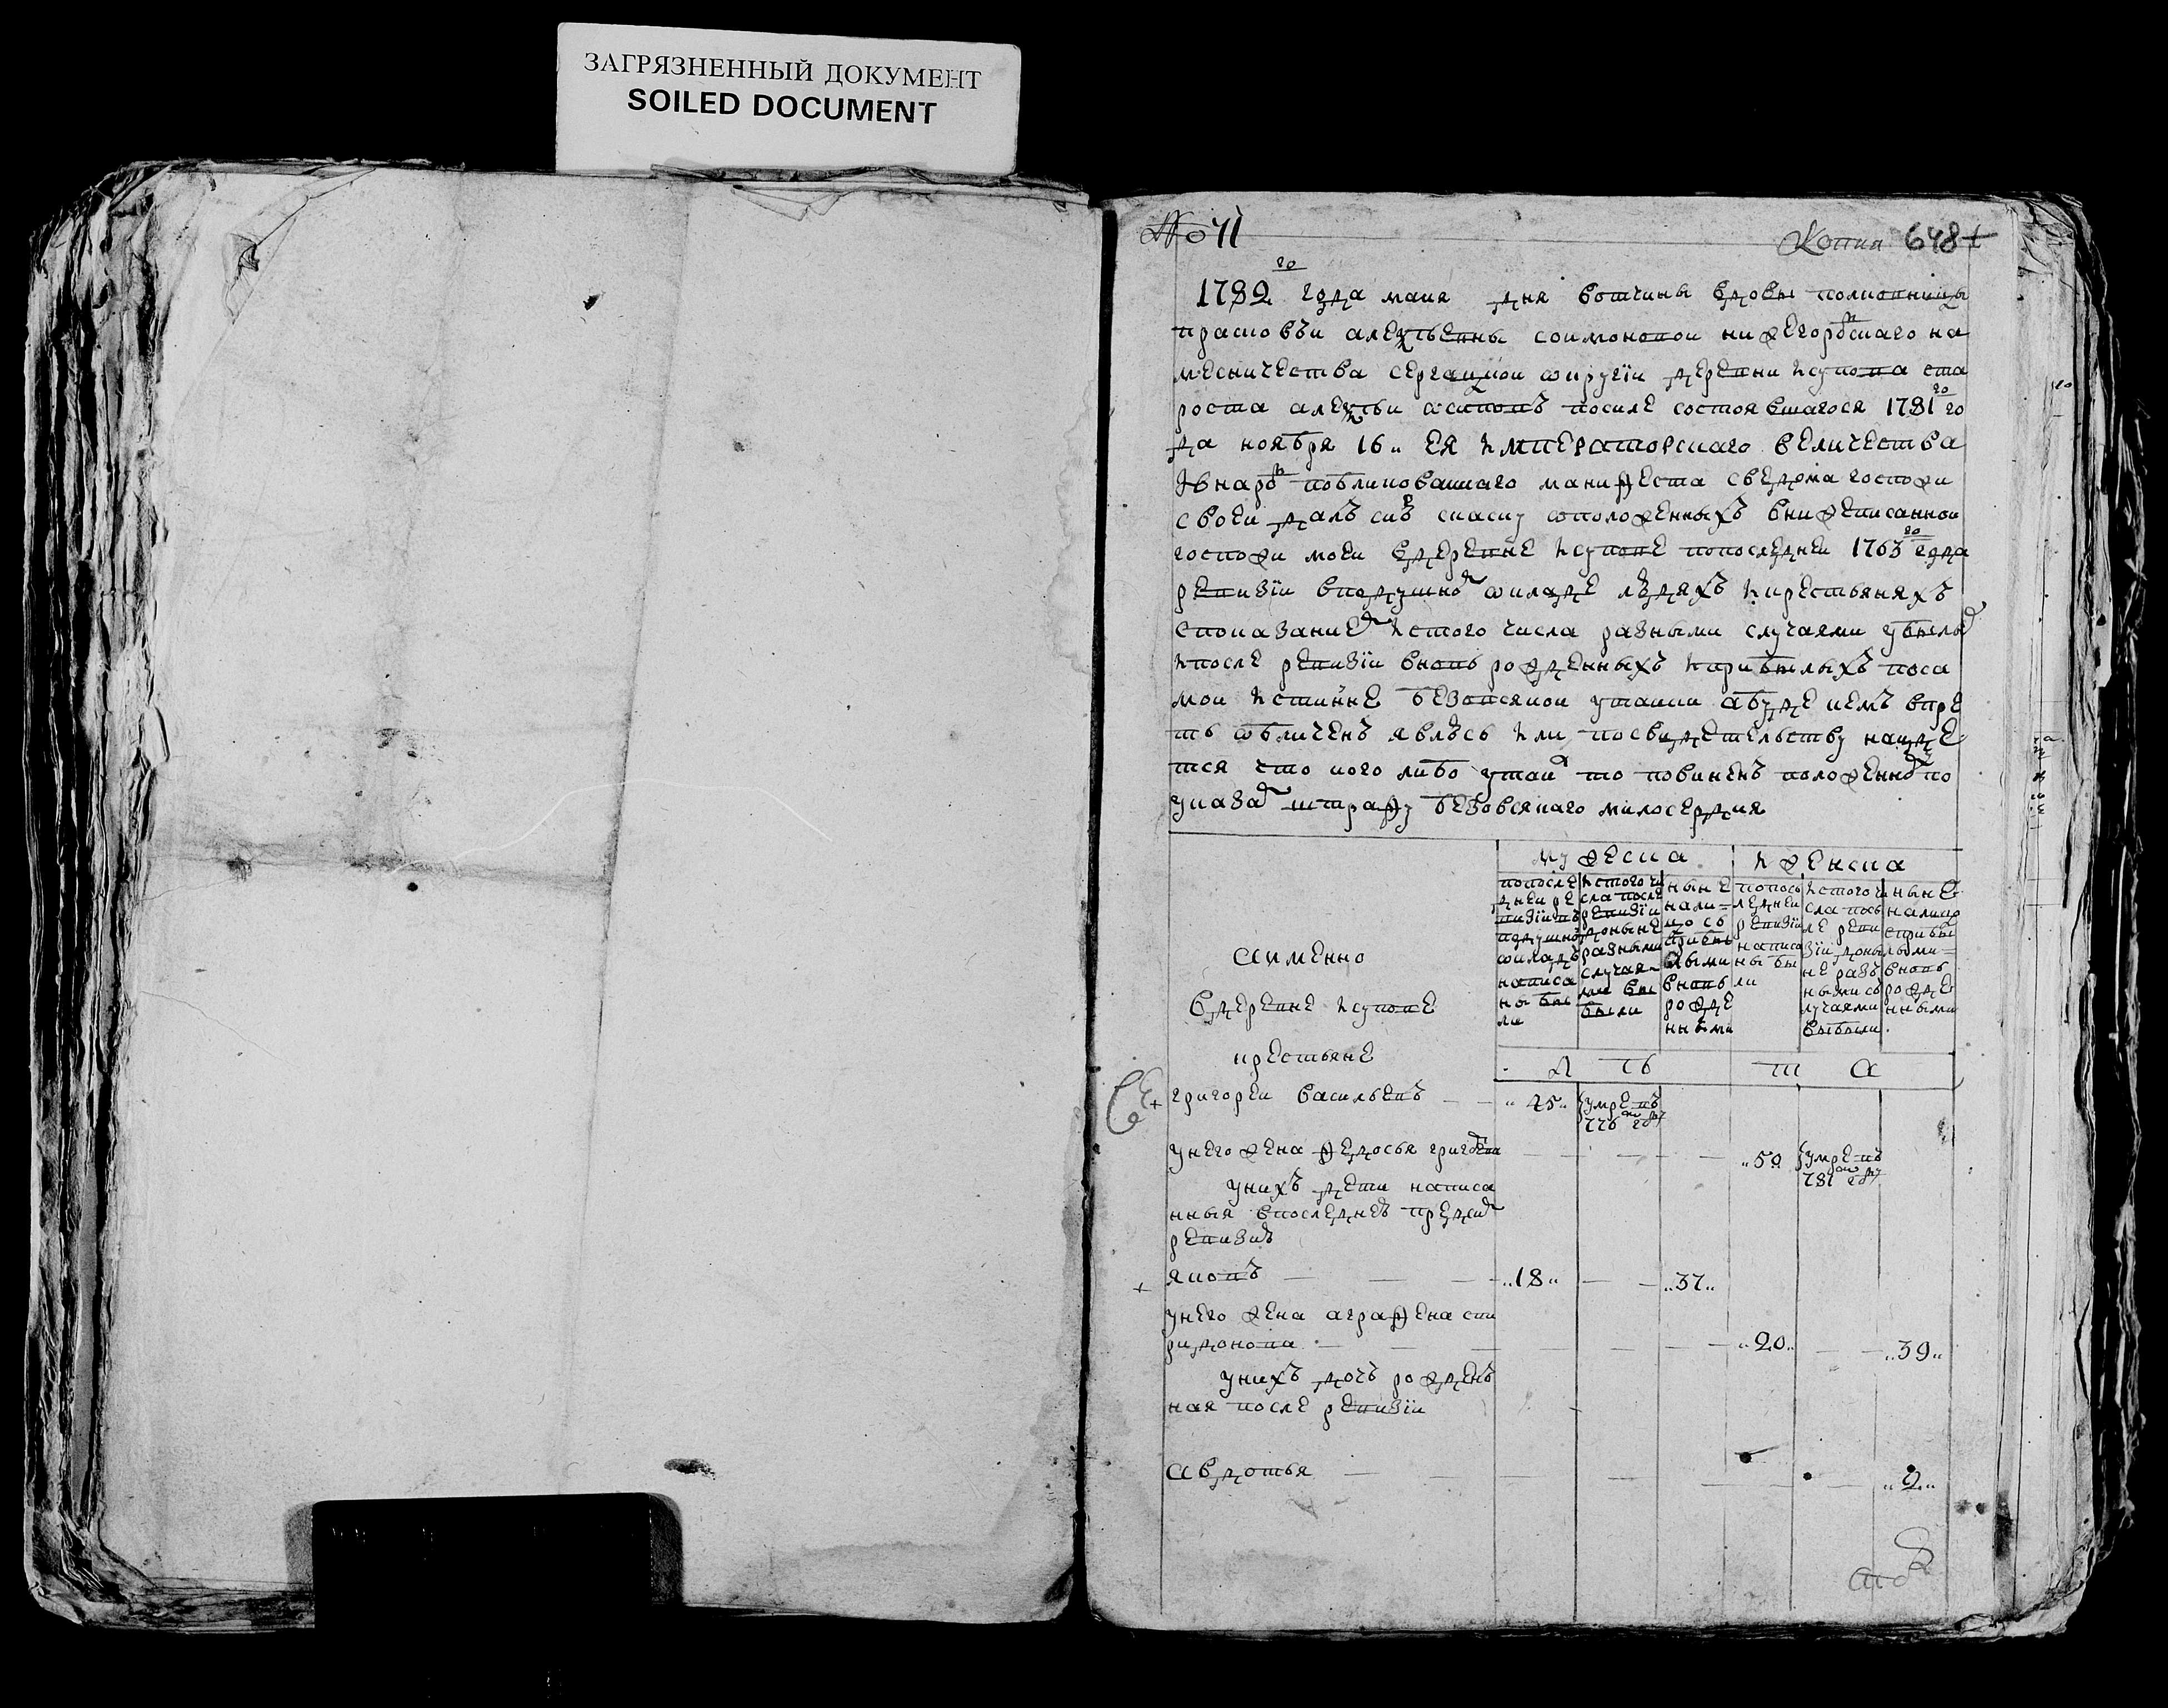 ЗАГРЯЗНЕННЫЙ ДОКУМЕНТ
SOILED DOCUMENT
№ 41
Копия 648
1782го года маия дня вотчины вдовы полковницы
прасковьи алексѣевны соимоновои нижегородскаго на
месничества сергацкои округи деревни исупова ста
роста алексѣи осиповъ посиле состоявшагося 1781го го
да ноября 16 ея императорскаго величества
внародъ публикованнаго манифеста сведома госпожи
своеи далъ сию скаску оположенныхъ внижеписаннои
госпожи моеи вдеревне исупове попоследнеи 1763го года
ревизии вподушнои окладе людяхъ икрестьяняхъ
спока­заниемъ истого числа разными случаями убылыхъ
ипосле ревизии вновь рожденныхъ иприбылыхъ поса
мои истинне безовсякои утаики абуде чемъ впре
ть обличенъ явлюсь или посвидетельству наиде
тся что кого либо утаил то повиненъ положенному по
указамъ штрафу безовсякаго милосердия
мужеска
иженска
попосле дней ревизии въ подушномъ окладъ написаны были
истого числа после ревизии доныне разными случаями выбыли
ныне налицо съ прибылыми вновь рожденными
попоследней ревизии написаны были
истого числа после ревизии доныне разными случаями выбыли
ныне налицо сприбылыми вновь рожденными
аименно
вдеревне исупове
крестьяне
л ѣ т а
григореи васильевъ 45 умре въ
776м году
унего жена федосья григорьева 50 умре въ
781м году
унихъ дети написа
нныя впоследнею пред сим
ревизию
яковъ 18 37
унего жена аграфена спи
ридонова 20 39
унихъ дочь рожден
ная после ревизии
авдотья 2